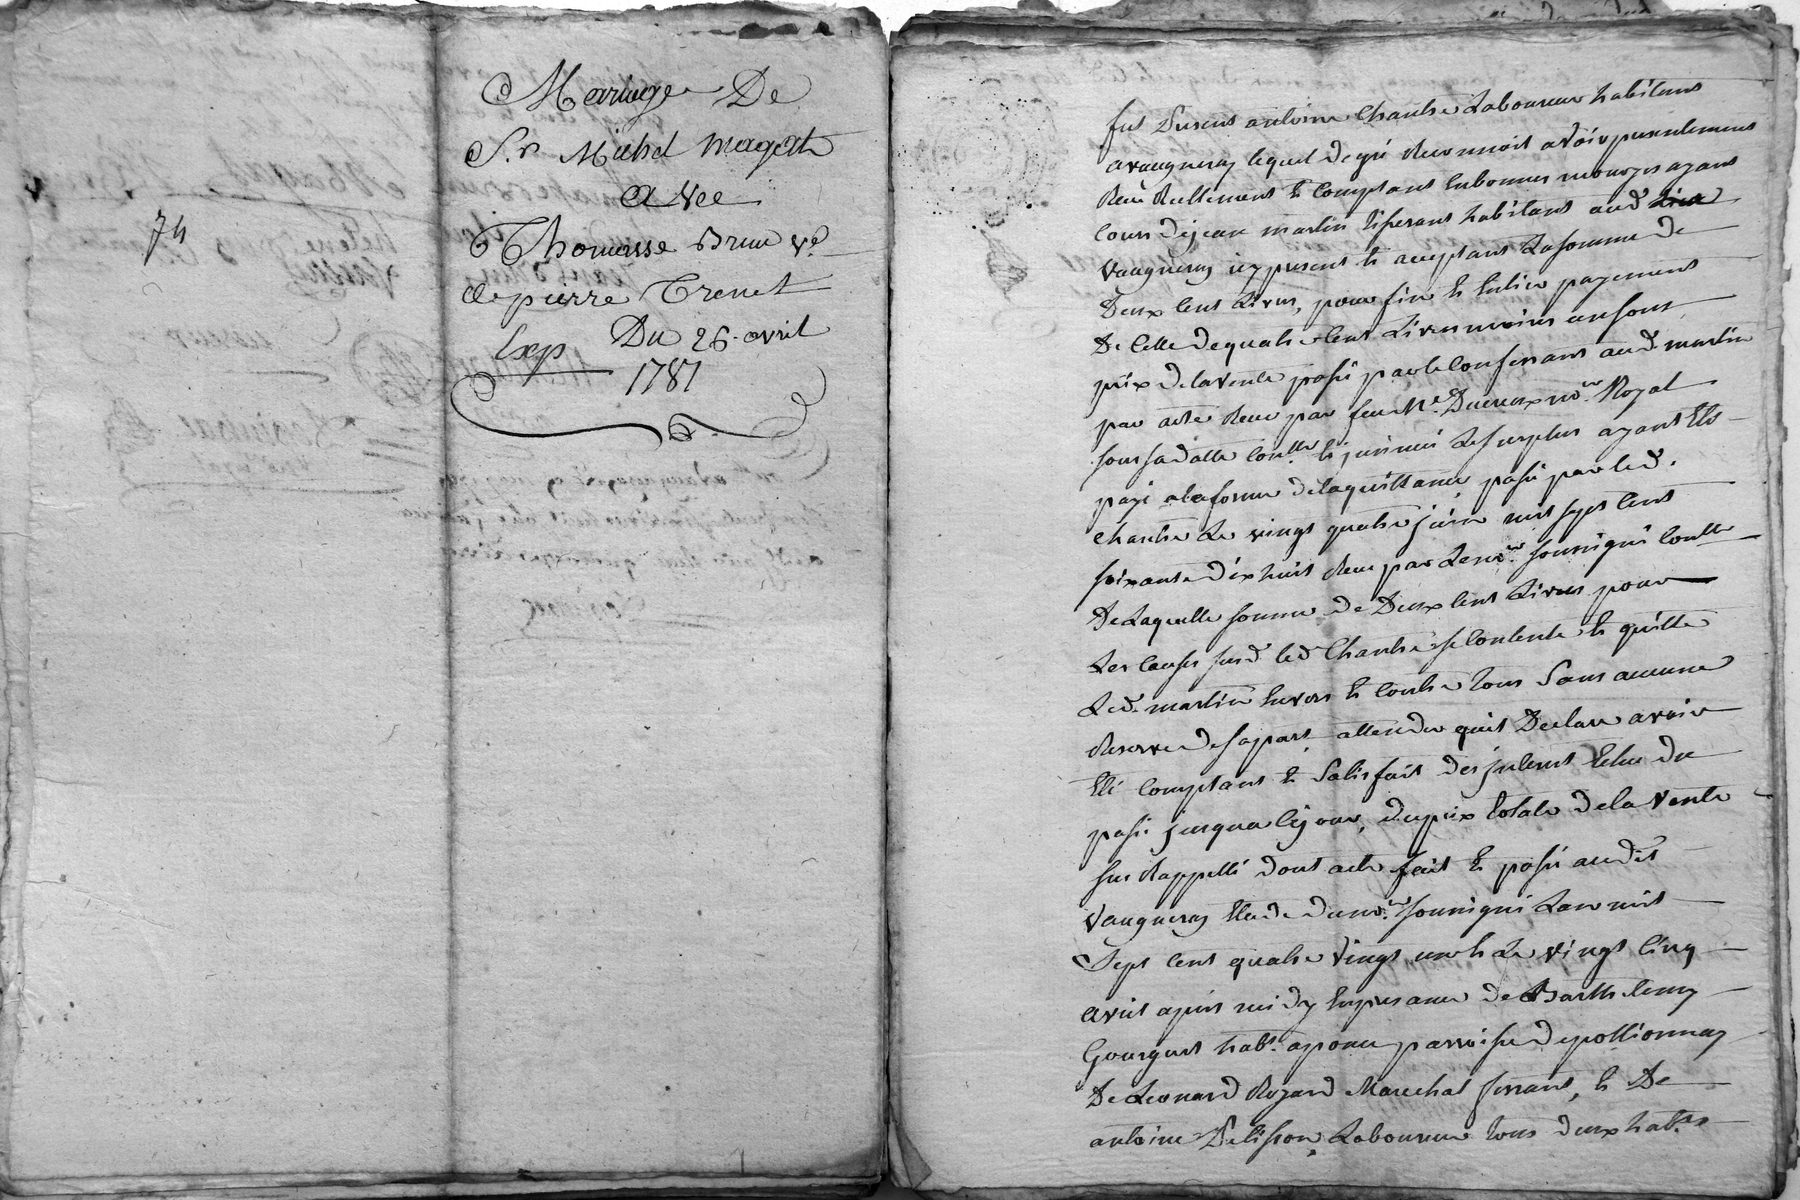 Mariage De
S.r Michel magat
avec
Thomasse Brun v.e
de pierre Trenet
Exp Du 26 avril
1781
74
fut présent antoine Chantre Laboureur habitant
a vaugneray lequel de gré reconnoit avoir presentement
Reçu Reellement et comptant en bonnes monoyes ayant
cours de jean martin tisserant habitant aud.
vaugneray icy present et acceptant La somme de
Deux cent Livres, pour fin et entier payement
De celle de quatre cent Livres moins un sous
prix de la vente passé par le confessant aud. martin
par acte Reçu par feu M.e no.re Royal
sous sa datte con.llé et insinué Le surplus ayant été
payé a la forme de la quittance passé par led.
chantre Le vingt quatre juin mil sept cent
soixante dix huit Reçu par Le no.re soussigné con.llé
De Laquelle somme de Deux cent Livres pour
Les causes susd. led. Chantre se contente et quitte
Led. martin envers et contre tous sans aucune
Reserve de sa part attendu qu'il Declare avoir
été comptant et satisfait des interet echu du
passé jusqua ce jour, du prix totale de la vente
sus Rappellé dont acte fait et passé audit
Vaugneray Etude du no.re soussigné Lan mil
Sept cent quatre vingt un et Le vingt cinq
avril apres midy en presance de Barthelemy
Gourgout hab.t a paroisse de pollionnay
De Leonard Rogard Marechal ferrant, et De
antoine Delisson Laboureur tous deux hab.ts